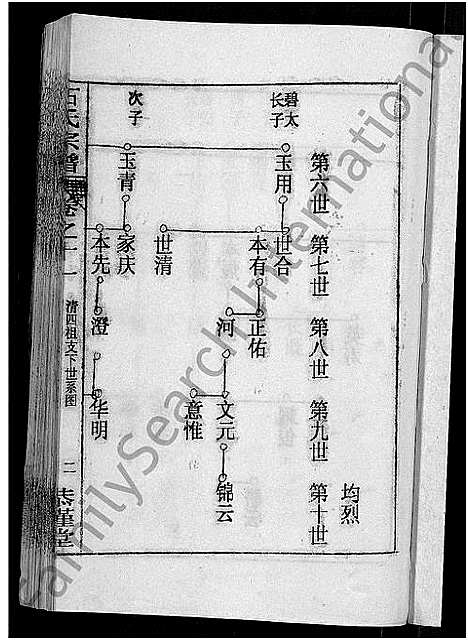 均烈
第六世
第七世
第八世
第九世
第十世
碧太
长子
玉用
世合
本有
正佑
河
文元
锦云
意惟
世清
次子
玉青
家庆
本先
澄
华明
石氏宗谱
卷之二一
清四祖支下世系图
二
恭谨堂
FamilySearch International